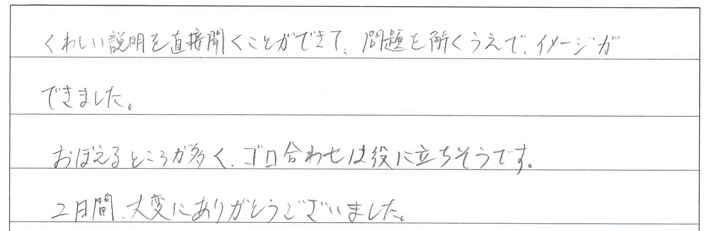 くわしい説明を直接聞くことができて、問題を解くうえで、イメージが
できました。
おぼえるところが多く、ゴロ合わせは役に立ちそうです。
2日間、大変にありがとうございました。